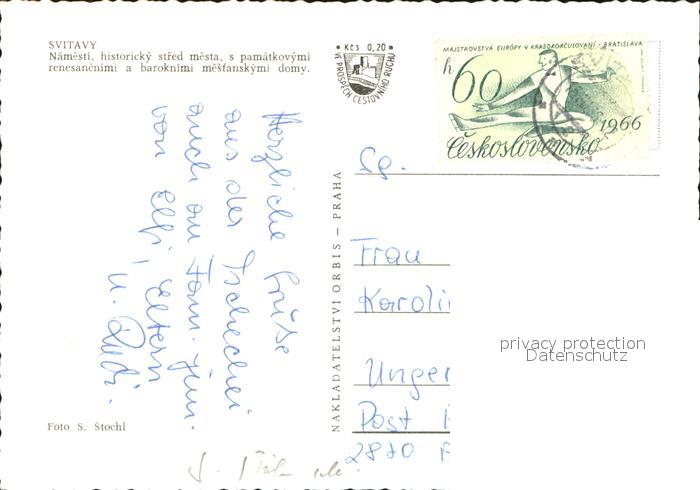 SVITAVY
Náměstí, historický střed města, s památkovými
renesančními a barokními měšťanskými domy.
Kčs 0,20
VE PROSPĚCH CESTOVNÍHO RUCHU
MAJSTROVSTVÁ EURÓPY V KRASOKORČUĽOVANÍ - BRATISLAVA
h 60
1966
Československo
Herzliche Grüße
aus der Tschechei
auch an Fam.
von Elfi, Eltern
u. Rudi.
NAKLADATELSTVÍ ORBIS — PRAHA
Sg.
Frau
Karoli
Unger
Post
2870
privacy protection
Datenschutz
Foto S. Štochl